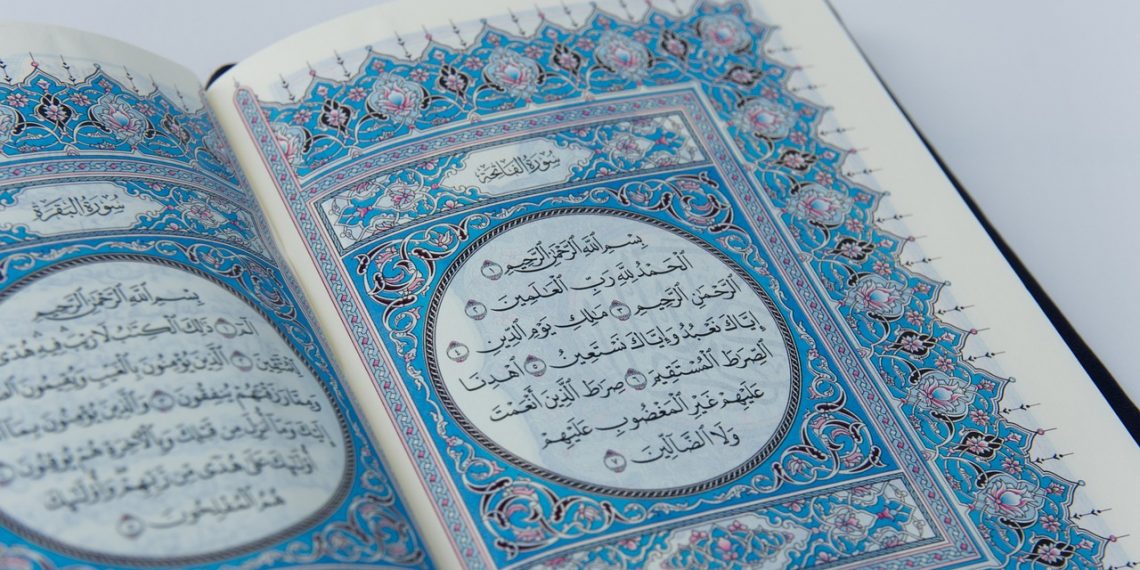 سُورَةُ الفَاتِحَة
بِسْمِ ٱللَّهِ ٱلرَّحْمَٰنِ ٱلرَّحِيمِ ١
ٱلْحَمْدُ لِلَّهِ رَبِّ ٱلْعَٰلَمِينَ ٢
ٱلرَّحْمَٰنِ ٱلرَّحِيمِ ٣ مَٰلِكِ يَوْمِ ٱلدِّينِ ٤
إِيَّاكَ نَعْبُدُ وَإِيَّاكَ نَسْتَعِينُ ٥ ٱهْدِنَا
ٱلصِّرَٰطَ ٱلْمُسْتَقِيمَ ٦ صِرَٰطَ ٱلَّذِينَ أَنْعَمْتَ
عَلَيْهِمْ غَيْرِ ٱلْمَغْضُوبِ عَلَيْهِمْ
وَلَا ٱلضَّآلِّينَ ٧
سُورَةُ البَقَرَة
بِسْمِ ٱللَّهِ ٱلرَّحْمَٰنِ ٱلرَّحِيمِ
الٓمٓ ١ ذَٰلِكَ ٱلْكِتَٰبُ لَا رَيْبَ فِيهِ هُدًى
لِّلْمُتَّقِينَ ٢ ٱلَّذِينَ يُؤْمِنُونَ بِٱلْغَيْبِ وَيُقِيمُونَ
وَمِمَّا رَزَقْنَٰهُمْ يُنفِقُونَ ٣ وَٱلَّذِينَ يُؤْمِنُونَ بِمَآ
إِلَيْكَ وَمَآ أُنزِلَ مِن قَبْلِكَ وَبِٱلْءَاخِرَةِ هُمْ يُوقِنُونَ ٤
أُوْلَٰٓئِكَ عَلَىٰ هُدًى مِّن رَّبِّهِمْ وَأُوْلَٰٓئِكَ
هُمُ ٱلْمُفْلِحُونَ ٥